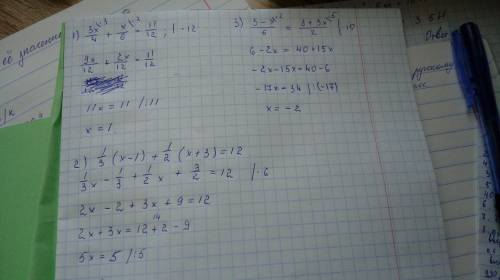 её значени
1) 3x^{\3}/4 + x^{\2}/6 = 11/12, | · 12
9x/12 + 2x/12 = 11/12
11x = 11 / :11
x = 1
2) 1/3 (x-1) + 1/2 (x+3) = 12
1/3 x - 1/3 + 1/2 x + 3/2 = 12 | · 6
2x - 2 + 3x + 9 = 12
2x + 3x = 12 + 2 - 9
14
5x = 5 / :5
3)
6 - 2x = 40 + 15x
-2x - 15x = 40 - 6
-17x = 34 | : (-17)
x = -2
Ответ